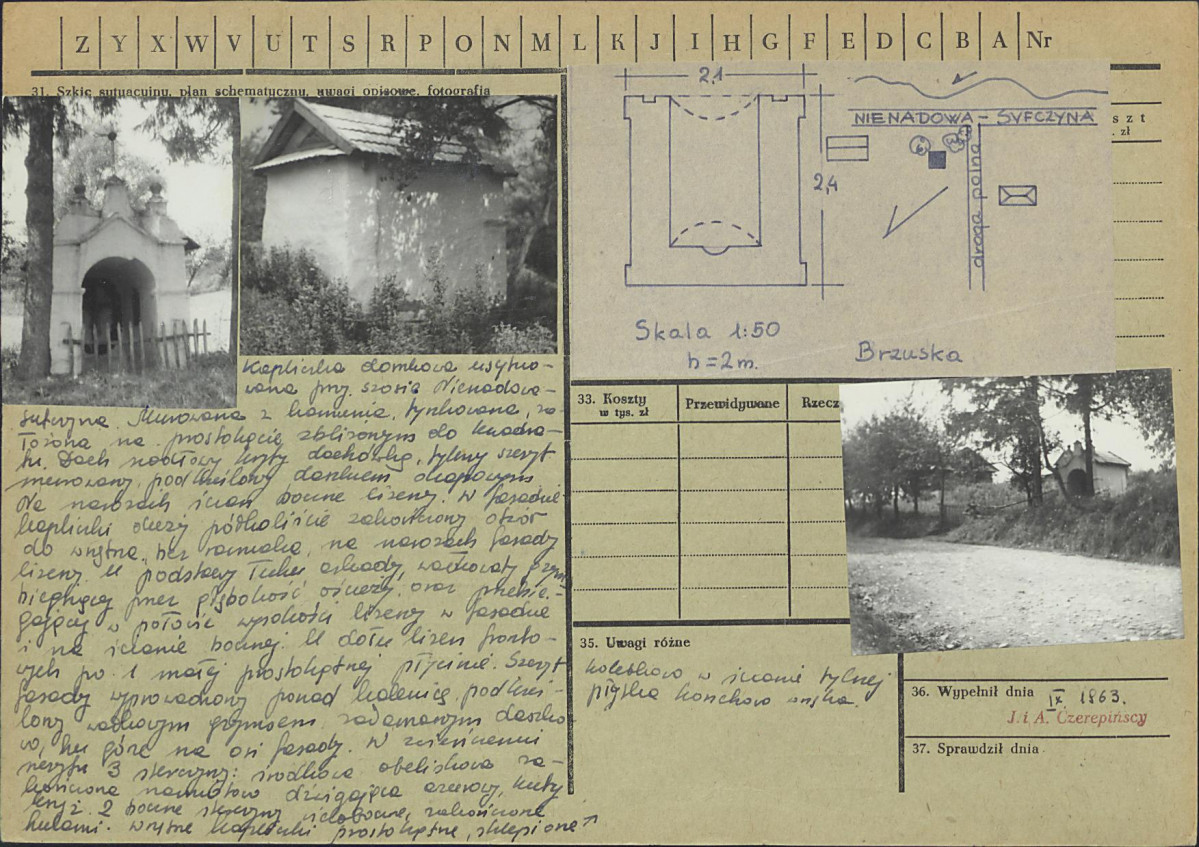 Z Y X W V U T S R P O N M L K J I H G F E D C B A Nr
31. Szkic sytuacyjny, plan schematyczny, uwagi opisowe, fotografia
szt
. zł
2,1
2,4
NIENADOWA - SUFCZYNA
droga polna
Skala 1:50
h = 2 m.
Brzuska
Kapliczka domkowa usytuo-
wana przy szosie Nienadowa-
Sufczyna. Murowana z kamienia, tynkowana, za-
łożona na prostokącie zbliżonym do kwadra-
tu. Dach siodłowy kryty dachówką, tylny szczyt
murowany, podkreślony daszkiem okapowym
Na narożach ścian bocznie lizeny. W fasadzie
kapliczki duży półkoliście zakończony otwór
do wnętrza, bez na narożach fasady
lizeny. U podstawy łuku arkady, wałkowaty gzyms
biegnący przez głębokość ościeży oraz przebie-
gający w połowie wysokości lizeny w fasadzie
i na ścianie bocznej. U dołu lizen fronto-
wych po 1 małej prostokątnej płycinie. Szczyt
fasady wyprowadzony ponad kalenicę, podkreś-
lony wałkowym gzymsem, załamanym daszko-
wo, ku górze na osi fasady. W zwieńczeniu
szczytu 3 sterczyny: środkowa obeliskowa za-
kończona namiotowo dźwigająca ażurowy, kuty
krzyż. 2 boczne sterczyny zakończone
kulami. Wnętrze kapliczki prostokątne, sklepione
33. Koszty
w tys. zł
Przewidywane
Rzecz
35. Uwagi różne
kolebkowo w ścianie tylnej
płytka konchowa wnęka.
36. Wypełnił dnia IX 1963.
J. i A. Czerepińscy
37. Sprawdził dnia